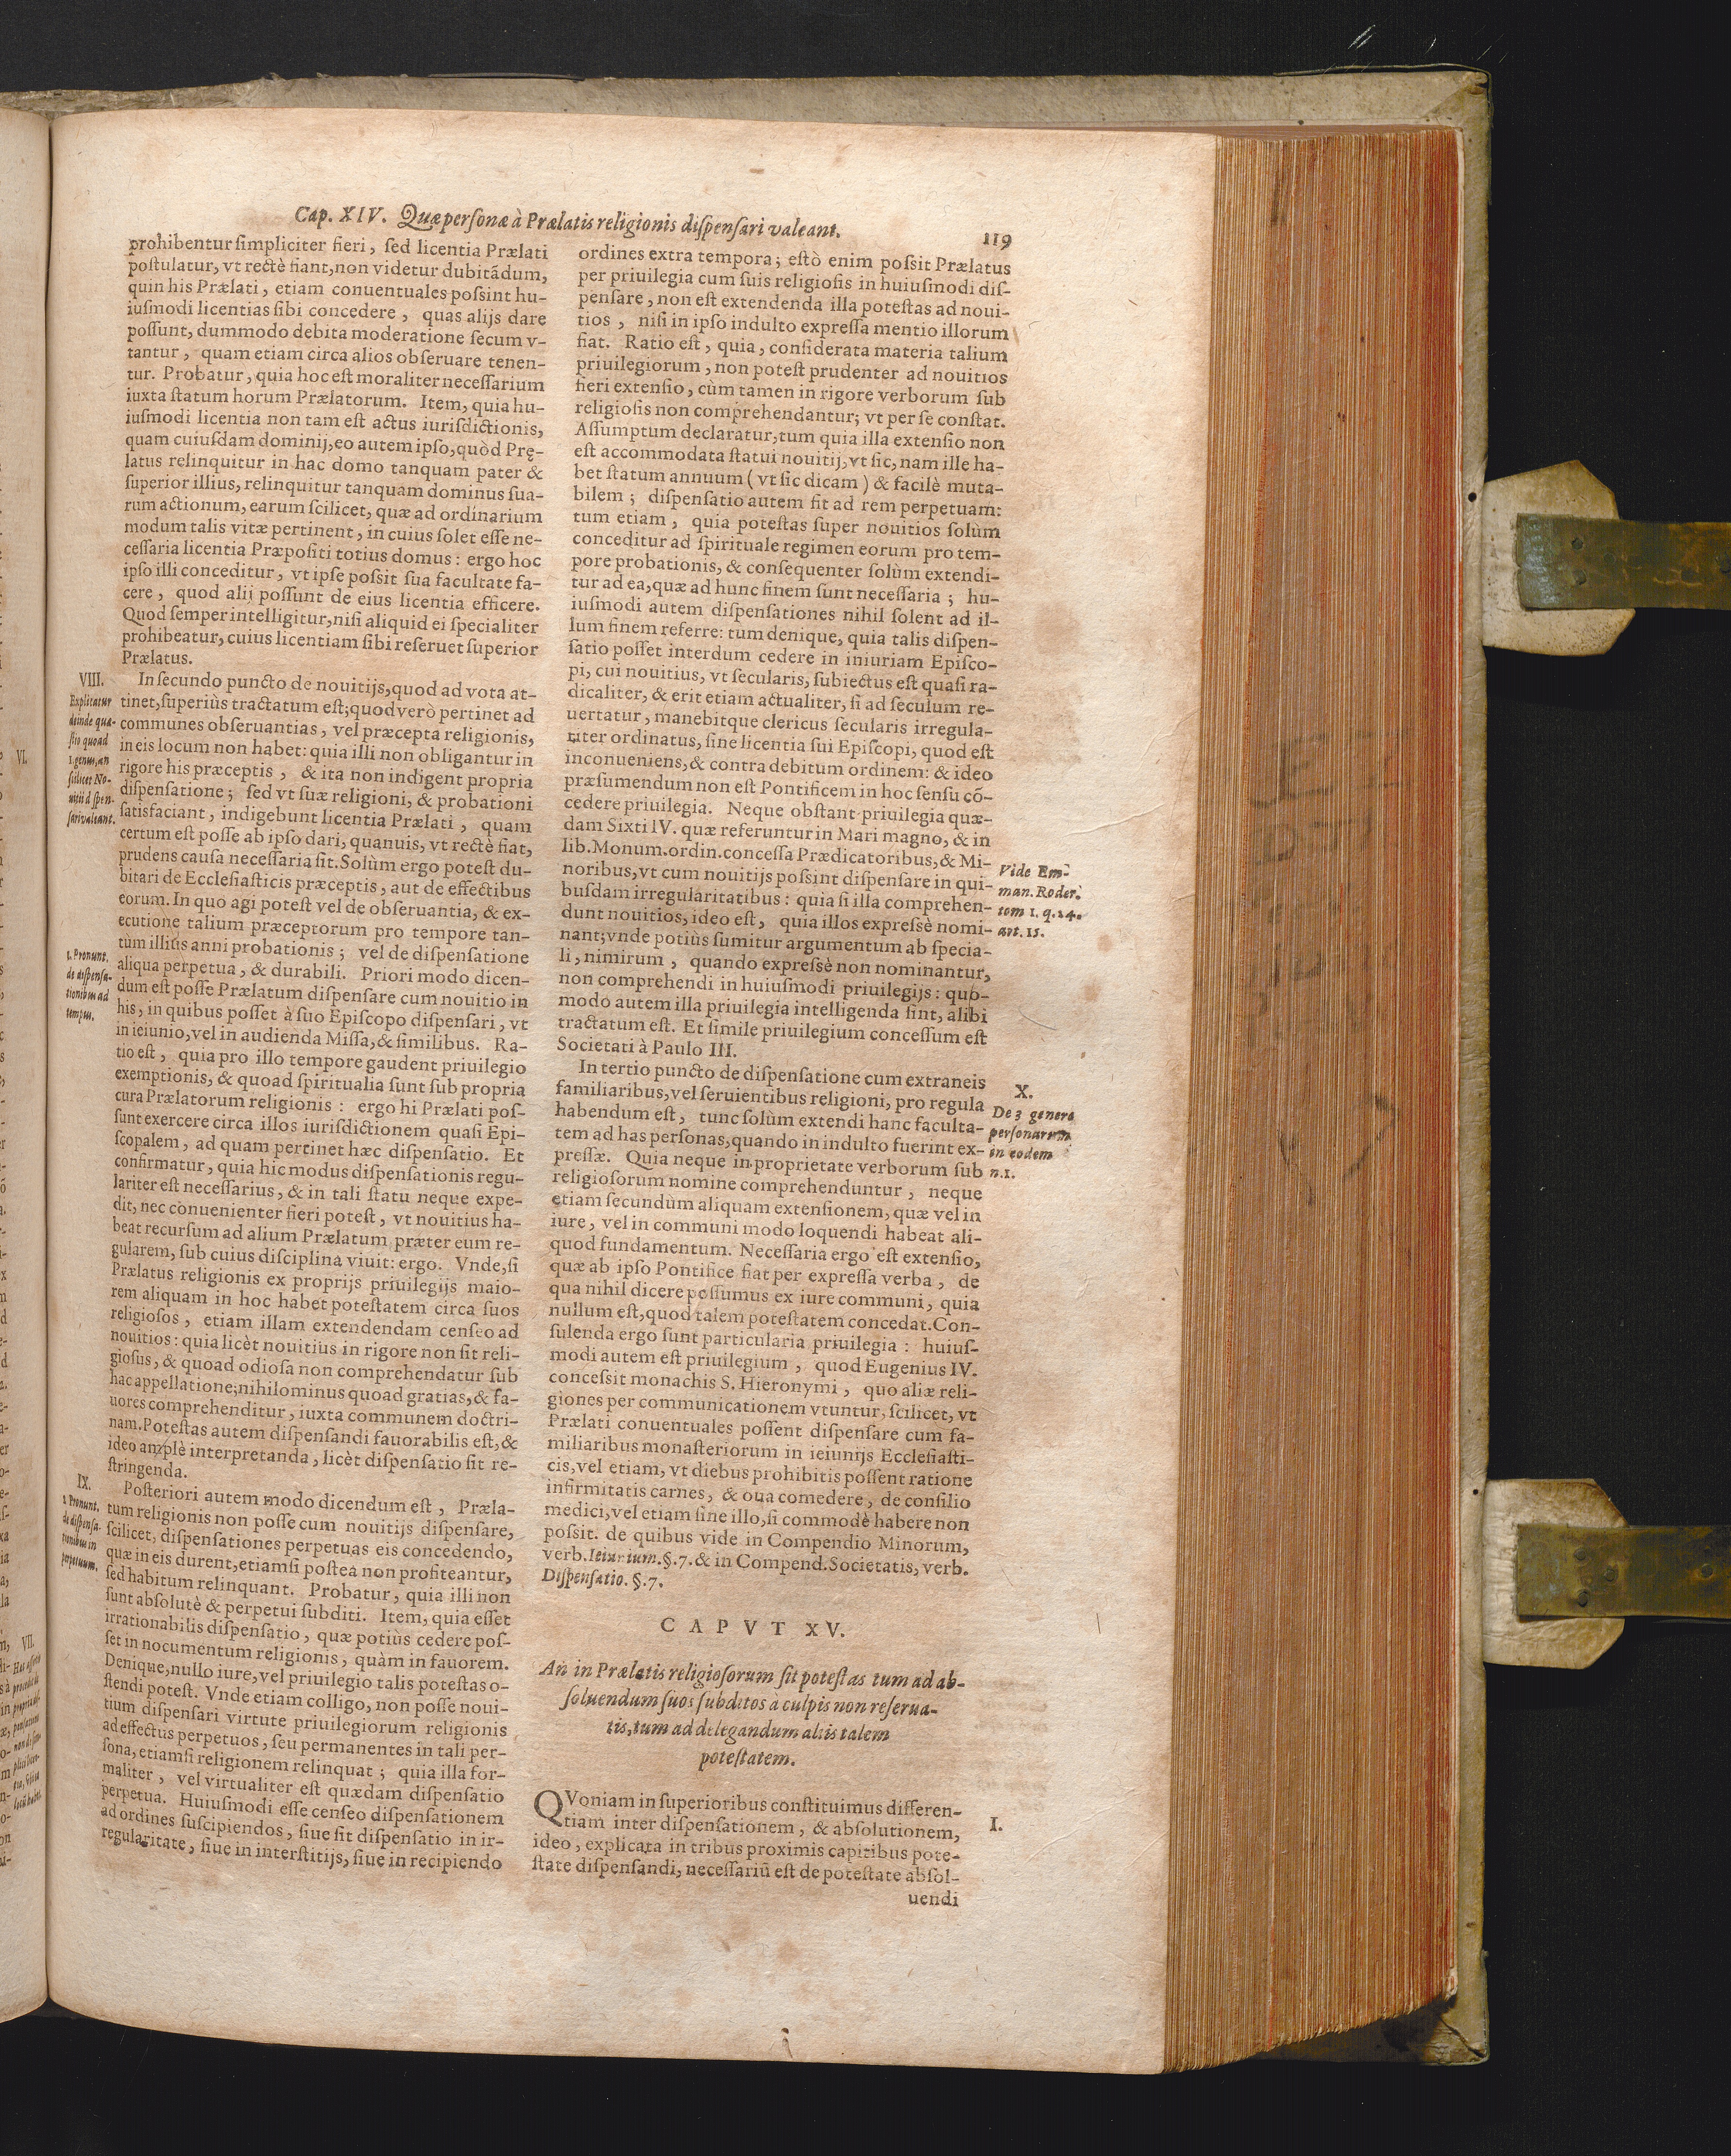 Cap. XIV. Quæ personæ à Prælatis religionis dispensari valeant.
119
prohibentur simpliciter fieri, sed licentia Prælati
postulatur, vt rectè fiant, non videtur dubitãdum,
quin his Prælati, etiam conuentuales possint hu-
iusmodi licentias sibi concedere, quas alijs dare
possunt, dummodo debita moderatione secum v-
tantur, quam etiam circa alios obseruare tenen-
tur. Probatur, quia hoc est moraliter necessarium
iuxta statum horum Prælatorum. Item, quia hu-
iusmodi licentia non tam est actus iurisdictionis,
quam cuiusdam dominij, eo autem ipso, quòd Prę-
latus relinquitur in hac domo tanquam pater &
superior illius, relinquitur tanquam dominus sua-
rum actionum, earum scilicet, quæ ad ordinarium
modum talis vitæ pertinent, in cuius solet esse ne-
cessaria licentia Præpositi totius domus: ergo hoc
ipso illi conceditur, vt ipse possit sua facultate fa-
cere, quod alij possunt de eius licentia efficere.
Quod semper intelligitur, nisi aliquid ei specialiter
prohibeatur, cuius licentiam sibi reseruet superior
Prælatus.
VIII.
Explicatur
deinde quæ-
stio quoad
1. genus, an
scilicet No-
uitii dispen-
sari valeant.
In secundo puncto de nouitijs, quod ad vota at-
tinet, superiùs tractatum est; quod verò pertinet ad
communes obseruantias, vel præcepta religionis,
in eis locum non habet: quia illi non obligantur in
rigore his præceptis, & ita non indigent propria
dispensatione; sed vt suæ religioni, & probationi
satisfaciant, indigebunt licentia Prælati, quam
certum est posse ab ipso dari, quanuis, vt rectè fiat,
prudens causa necessaria sit. Solùm ergo potest du-
bitari de Ecclesiasticis præceptis, aut de effectibus
eorum. In quo agi potest vel de obseruantia, & ex-
ecutione talium præceptorum pro tempore tan-
tùm illius anni probationis; vel de dispensatione
aliqua perpetua, & durabili. Priori modo dicen-
dum est posse Prælatum dispensare cum nouitio in
his, in quibus posset à suo Episcopo dispensari, vt
in ieiunio, vel in audienda Missa, & similibus. Ra-
tio est, quia pro illo tempore gaudent priuilegio
exemptionis, & quoad spiritualia sunt sub propria
cura Prælatorum religionis: ergo hi Prælati pos-
sunt exercere circa illos iurisdictionem quasi Epi-
scopalem, ad quam pertinet hæc dispensatio. Et
confirmatur, quia hic modus dispensationis regu-
lariter est necessarius, & in tali statu neque expe-
dit, nec conuenienter fieri potest, vt nouitius ha-
beat recursum ad alium Prælatum præter eum re-
gularem, sub cuius disciplina viuit: ergo. Vnde, si
Prælatus religionis ex proprijs priuilegijs maio-
rem aliquam in hoc habet potestatem circa suos
religiosos, etiam illam extendendam censeo ad
nouitios: quia licèt nouitius in rigore non sit reli-
giosus, & quoad odiosa non comprehendatur sub
hac appellatione; nihilominus quoad gratias, & fa-
uores comprehenditur, iuxta communem doctri-
nam. Potestas autem dispensandi fauorabilis est, &
ideo amplè interpretanda, licèt dispensatio sit re-
stringenda.
1. Pronunt.
de dispensa-
tionibus ad
tempus.
IX.
2. Pronunt.
de dispensa-
tionibus in
perpetuum.
Posteriori autem modo dicendum est, Præla-
tum religionis non posse cum nouitijs dispensare,
scilicet, dispensationes perpetuas eis concedendo,
quæ in eis durent, etiamsi postea non profiteantur,
sed habitum relinquant. Probatur, quia illi non
sunt absolutè & perpetui subditi. Item, quia esset
irrationabilis dispensatio, quæ potiùs cedere pos-
set in nocumentum religionis, quàm in fauorem.
Denique, nullo iure, vel priuilegio talis potestas o-
stendi potest. Vnde etiam colligo, non posse noui-
tium dispensari virtute priuilegiorum religionis
ad effectus perpetuos, seu permanentes in tali per-
sona, etiamsi religionem relinquat; quia illa for-
maliter, vel virtualiter est quædam dispensatio
perpetua. Huiusmodi esse censeo dispensationem
ad ordines suscipiendos, siue sit dispensatio in ir-
regularitate, siue in interstitijs, siue in recipiendo
ordines extra tempora; estò enim possit Prælatus
per priuilegia cum suis religiosis in huiusmodi dis-
pensare, non est extendenda illa potestas ad noui-
tios, nisi in ipso indulto expressa mentio illorum
fiat. Ratio est, quia, considerata materia talium
priuilegiorum, non potest prudenter ad nouitios
fieri extensio, cùm tamen in rigore verborum sub
religiosis non comprehendantur; vt per se constat.
Assumptum declaratur, tum quia illa extensio non
est accommodata statui nouitij, vt sic, nam ille ha-
bet statum annuum (vt sic dicam) & facilè muta-
bilem; dispensatio autem fit ad rem perpetuam:
tum etiam, quia potestas super nouitios solùm
conceditur ad spirituale regimen eorum pro tem-
pore probationis, & consequenter solùm extendi-
tur ad ea, quæ ad hunc finem sunt necessaria; hu-
iusmodi autem dispensationes nihil solent ad il-
lum finem referre: tum denique, quia talis dispen-
satio posset interdum cedere in iniuriam Episco-
pi, cui nouitius, vt secularis, subiectus est quasi ra-
dicaliter, & erit etiam actualiter, si ad seculum re-
uertatur, manebitque clericus secularis irregula-
riter ordinatus, sine licentia sui Episcopi, quod est
inconueniens, & contra debitum ordinem: & ideo
præsumendum non est Pontificem in hoc sensu cõ-
cedere priuilegia. Neque obstant priuilegia quæ-
dam Sixti IV. quæ referuntur in Mari magno, & in
lib. Monum. ordin. concessa Prædicatoribus, & Mi-
noribus, vt cum nouitijs possint dispensare in qui-
busdam irregularitatibus: quia si illa comprehen-
dunt nouitios, ideo est, quia illos expressè nomi-
nant; vnde potiùs sumitur argumentum ab specia-
li, nimirum, quando expressè non nominantur,
non comprehendi in huiusmodi priuilegijs: quo-
modo autem illa priuilegia intelligenda sint, alibi
tractatum est. Et simile priuilegium concessum est
Societati à Paulo III.
Vide Em-
man. Roder.
tom 1. q. 24.
art. 15.
X.
De 3 genere
personarum
in eodem
n. 1.
In tertio puncto de dispensatione cum extraneis
familiaribus, vel seruientibus religioni, pro regula
habendum est, tunc solùm extendi hanc faculta-
tem ad has personas, quando in indulto fuerint ex-
pressæ. Quia neque in proprietate verborum sub
religiosorum nomine comprehenduntur, neque
etiam secundùm aliquam extensionem, quæ vel in
iure, vel in communi modo loquendi habeat ali-
quod fundamentum. Necessaria ergo est extensio,
quæ ab ipso Pontifice fiat per expressa verba, de
qua nihil dicere possumus ex iure communi, quia
nullum est, quod talem potestatem concedat. Con-
sulenda ergo sunt particularia priuilegia: huius-
modi autem est priuilegium, quod Eugenius IV.
concessit monachis S. Hieronymi, quo aliæ reli-
giones per communicationem vtuntur, scilicet, vt
Prælati conuentuales possent dispensare cum fa-
miliaribus monasteriorum in ieiunijs Ecclesiasti-
cis, vel etiam, vt diebus prohibitis possent ratione
infirmitatis carnes, & oua comedere, de consilio
medici, vel etiam sine illo, si commodè habere non
possit. de quibus vide in Compendio Minorum,
verb. Ieiunium. §. 7. & in Compend. Societatis, verb.
Dispensatio. §. 7.
CAPVT XV.
An in Prælatis religiosorum sit potestas tum ad ab-
soluendum suos subditos à culpis non reserua-
tis, tum ad delegandum aliis talem
potestatem.
I.
QVoniam in superioribus constituimus differen-
tiam inter dispensationem, & absolutionem,
ideo, explicata in tribus proximis capitibus pote-
state dispensandi, necessariũ est de potestate absol-
uendi
VI.
VII.